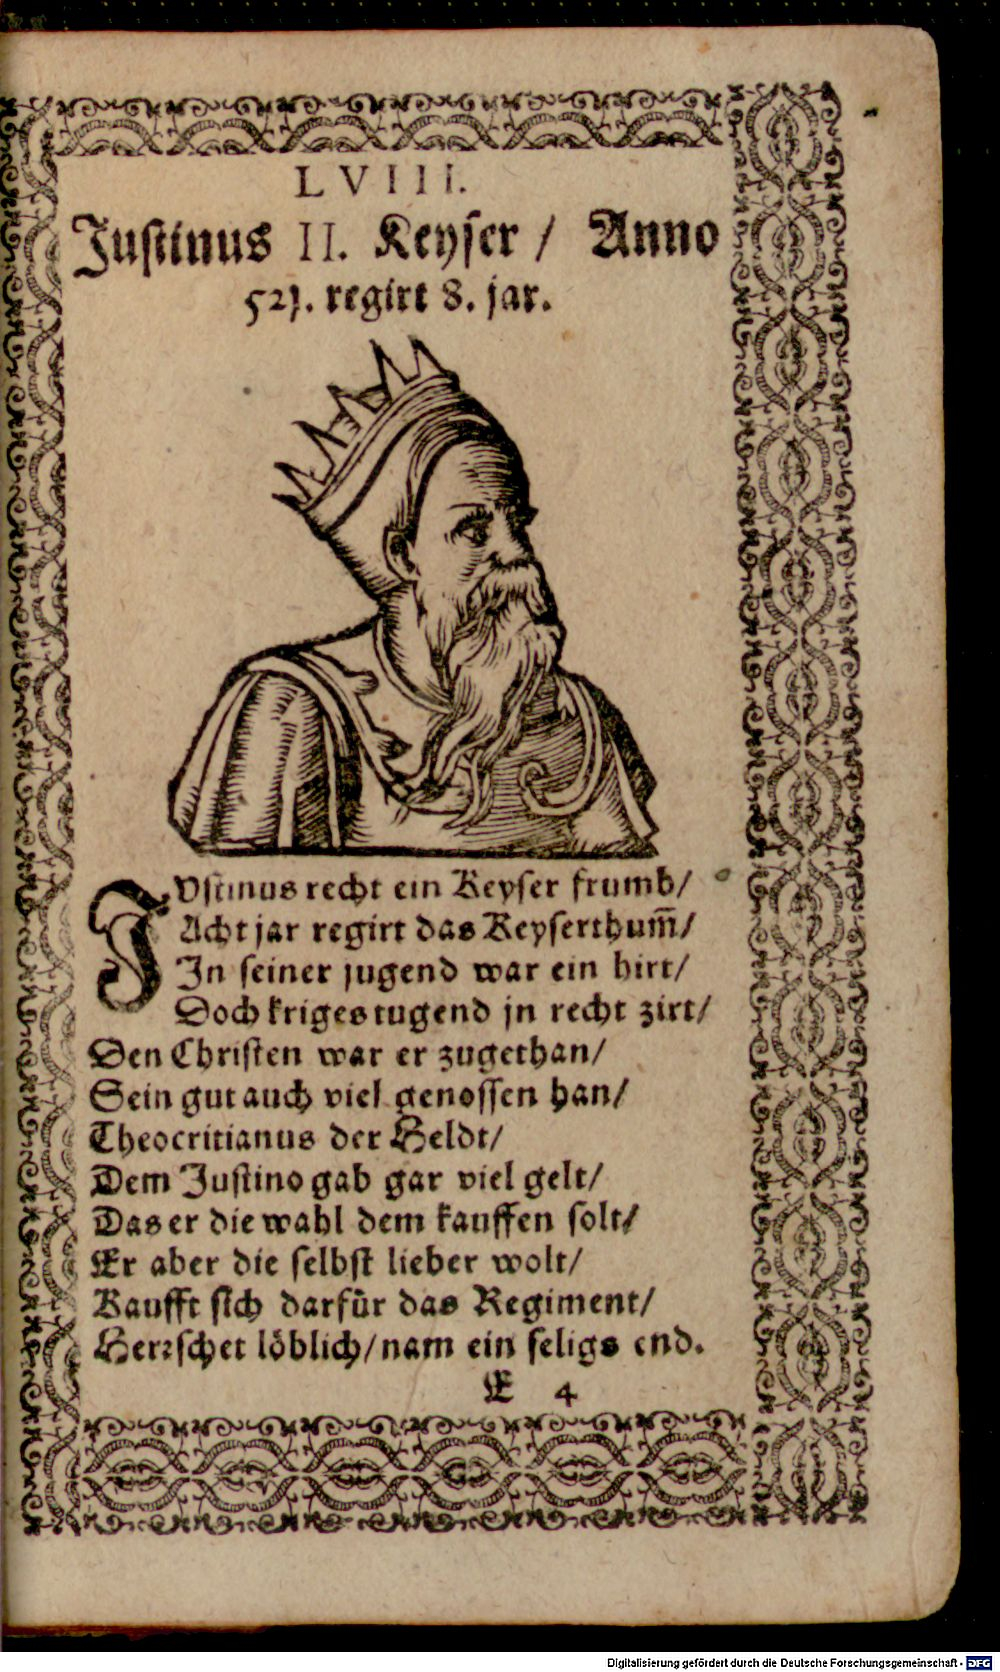 LVIII.
Justinus II. Keyser / Anno
521. regirt 8. jar.
JVstinus recht ein Keyser frumb/
Acht jar regirt das Keyserthum̃/
In seiner jugend war ein hirt/
Doch kriges tugend jn recht zirt/
Den Christen war er zugethan/
Sein gut auch viel genossen han/
Theocritianus der Heldt/
Dem Justino gab gar viel gelt/
Das er die wahl dem kauffen solt/
Er aber die selbst lieber wolt/
Kaufft sich darfür das Regiment/
Herꝛschet löblich/ nam ein seligs end.
E 4
Digitalisierung gefördert durch die Deutsche Forschungsgemeinschaft - DFG